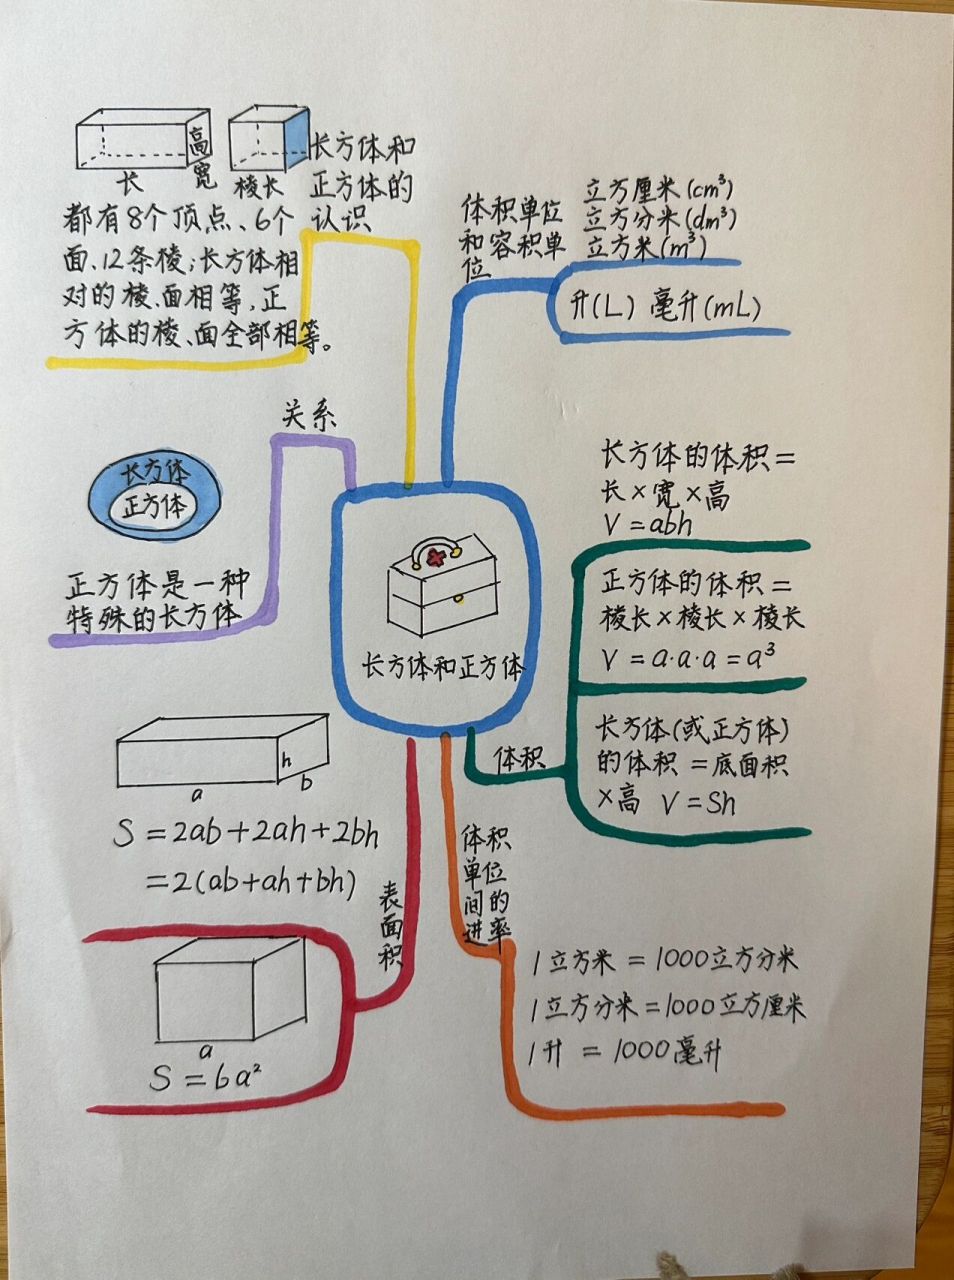 长方体和正方体
长
宽
高
棱长
长方体和
正方体的
认识
都有8个顶点、6个
面、12条棱;长方体相
对的棱、面相等,正
方体的棱、面全部相等。
体积单位
和容积单
位
立方厘米(cm³)
立方分米(dm³)
立方米(m³)
升(L) 毫升(mL)
关系
长方体
正方体
正方体是一种
特殊的长方体
体积
长方体的体积=
长×宽×高
V=abh
正方体的体积=
棱长×棱长×棱长
V=a·a·a=a³
长方体(或正方体)
的体积=底面积
×高 V=Sh
表
面
积
h
a
b
S=2ab+2ah+2bh
=2(ab+ah+bh)
a
S=6a²
体积
单位
间的
进率
1立方米=1000立方分米
1立方分米=1000立方厘米
1升=1000毫升